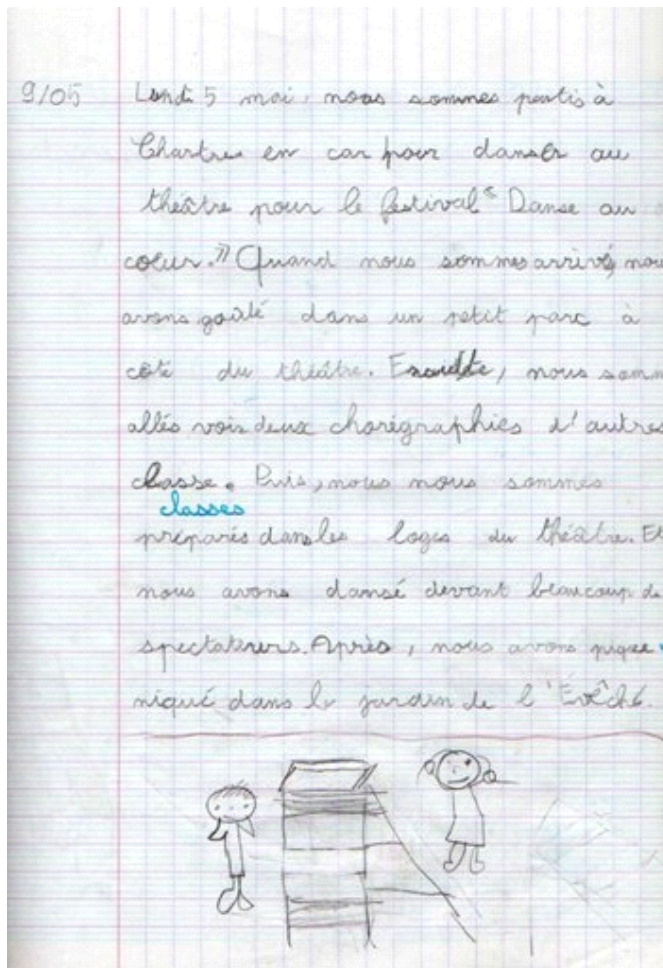 9/05 Lundi 5 mai, nous sommes partis à
Chartres en car pour danser au
théâtre pour le festival "Danse au
coeur." Quand nous sommes arrivés, nous
avons goûté dans un petit parc à
côté du théâtre. Ensuite, nous somm
allés voir deux chorégraphies d'autres
classe. Puis, nous nous sommes
classes
préparés dans les loges du théâtre. Et
nous avons dansé devant beaucoup de
spectateurs. Après, nous avons pique-
niqué dans le jardin de l'Évêché.